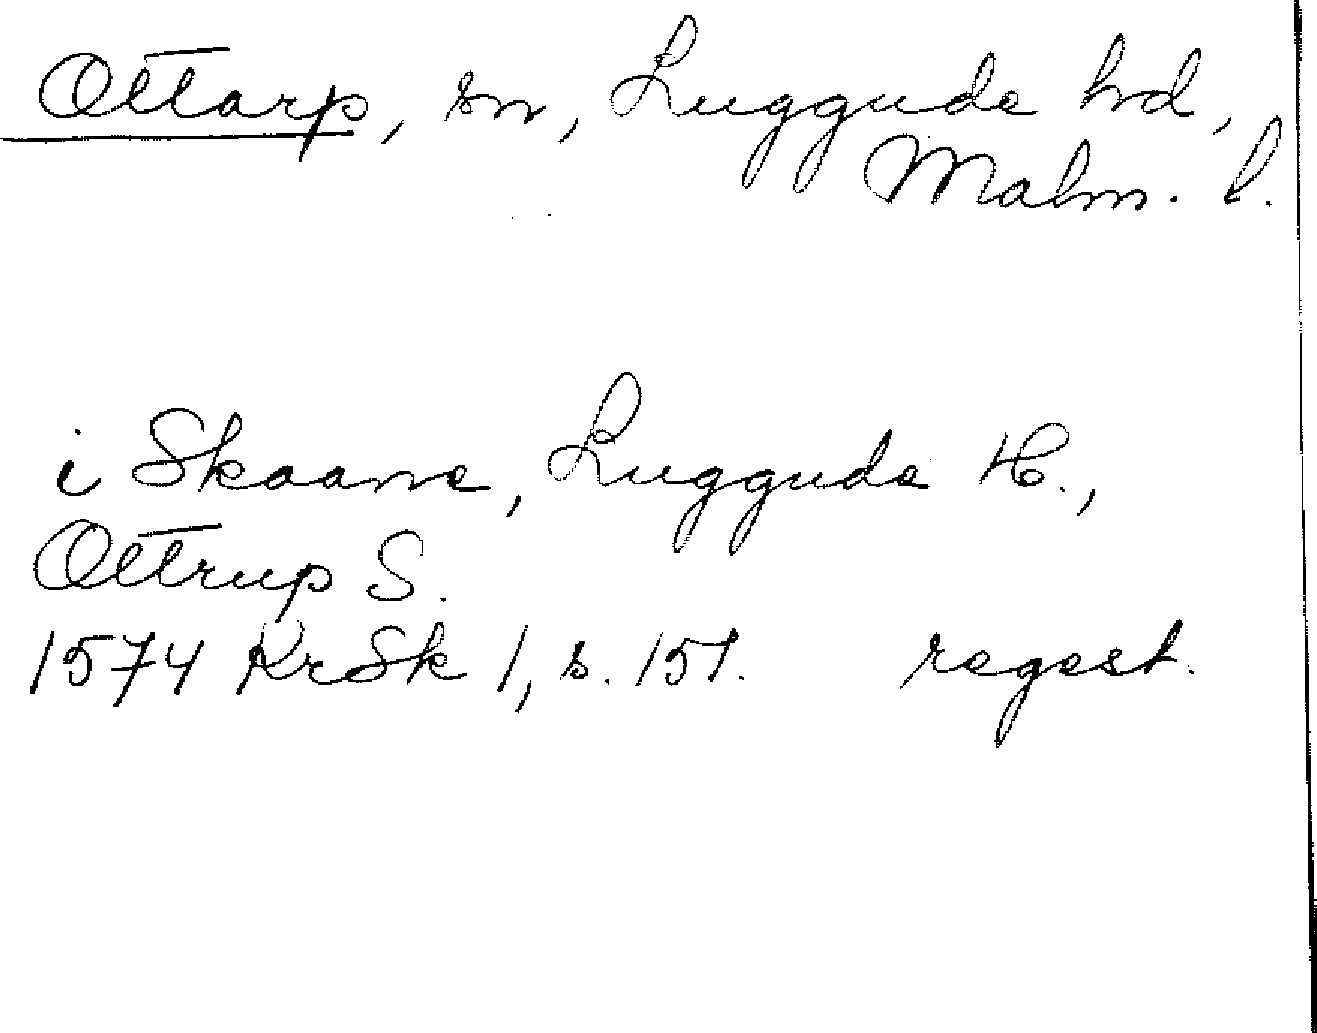 Ottarp, sn, Luggude hd,
Malm. l.
i Skaane, Luggude H.,
Ottrup S.
1574 KrSk 1, s. 151. regest.